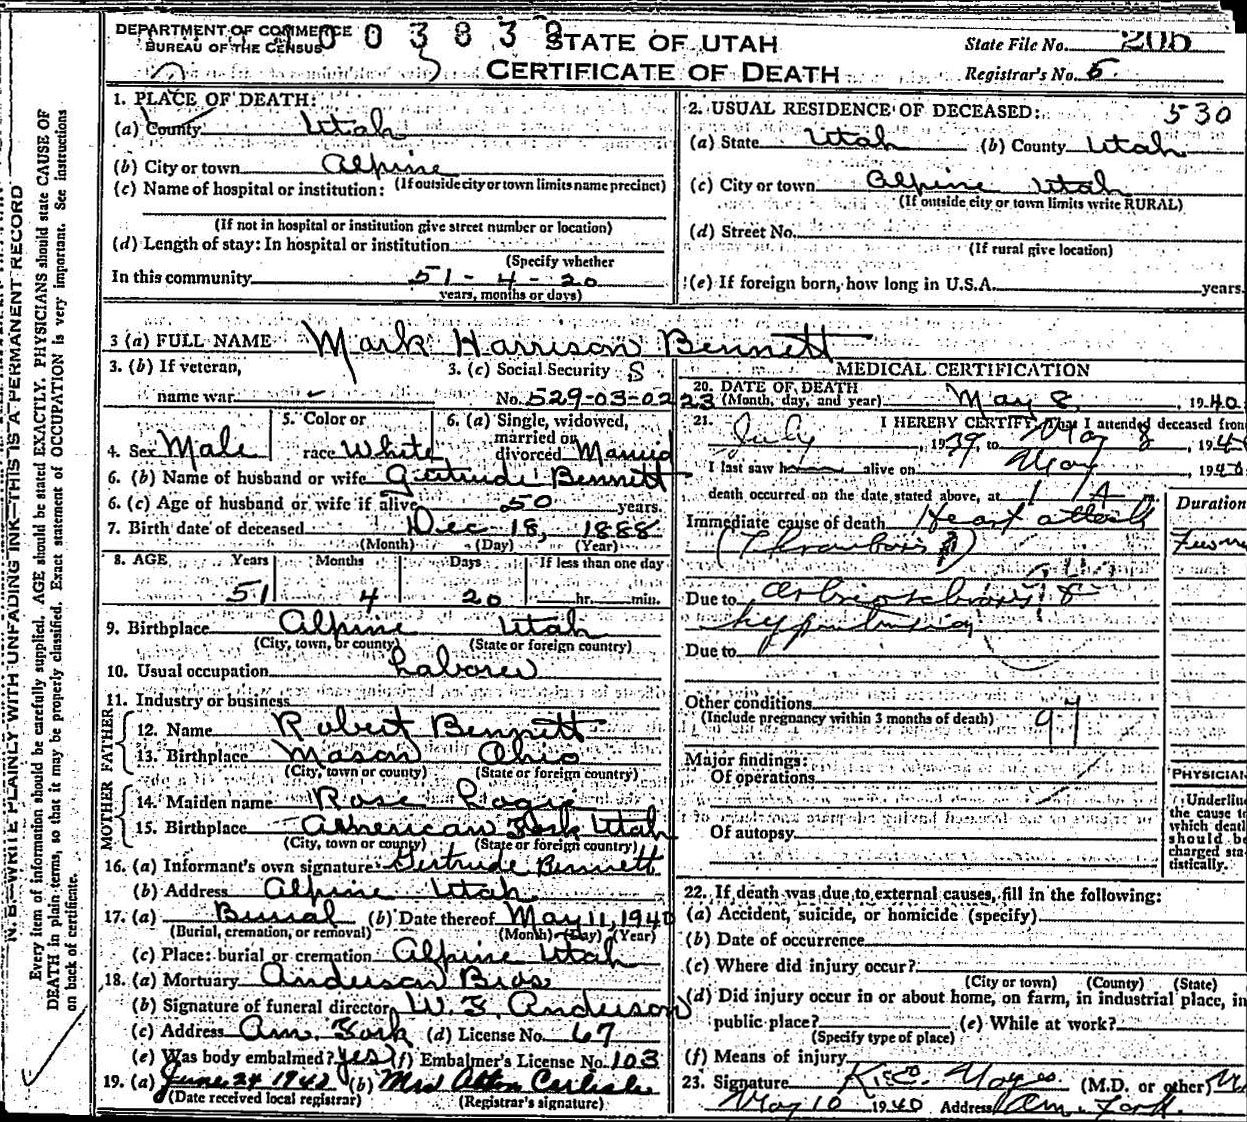 DEPARTMENT OF COMMERCE
BUREAU OF THE CENSUS
003839
STATE OF UTAH
CERTIFICATE OF DEATH
State File No. 206
Registrar's No. 5
N. B.—WRITE PLAINLY WITH UNFADING INK—THIS IS A PERMANENT RECORD
Every item of information should be carefully supplied. AGE should be stated EXACTLY. PHYSICIANS should state CAUSE OF
DEATH in plain terms, so that it may be properly classified. Exact statement of OCCUPATION is very important. See instructions
on back of certificate.
1. PLACE OF DEATH:
(a) County Utah
(b) City or town Alpine
(If outside city or town limits name precinct)
(c) Name of hospital or institution:
(If not in hospital or institution give street number or location)
(d) Length of stay: In hospital or institution
(Specify whether
In this community 51-4-20
years, months or days)
2. USUAL RESIDENCE OF DECEASED: 530
(a) State Utah (b) County Utah
(c) City or town Alpine Utah
(If outside city or town limits write RURAL)
(d) Street No.
(If rural give location)
(e) If foreign born, how long in U.S.A. years.
3 (a) FULL NAME Mark Harrison Bennett
3. (b) If veteran,
name war
3. (c) Social Security S
No. 529-03-0223
4. Sex Male
5. Color or
race White
6. (a) Single, widowed,
married or
divorced Married
6. (b) Name of husband or wife Gertrude Bennett
6. (c) Age of husband or wife if alive 50 years.
7. Birth date of deceased Dec 18, 1888
(Month) (Day) (Year)
8. AGE Years Months Days If less than one day
51 4 20 hr. min.
9. Birthplace Alpine Utah
(City, town, or county) (State or foreign country)
10. Usual occupation Laborer
11. Industry or business
FATHER
12. Name Robert Bennett
13. Birthplace Mason Ohio
(City, town or county) (State or foreign country)
MOTHER
14. Maiden name Rose Logie
15. Birthplace American Fork Utah
(City, town or county) (State or foreign country)
16. (a) Informant's own signature Gertrude Bennett
(b) Address Alpine Utah
17. (a) Burial (b) Date thereof May 11, 1940
(Burial, cremation, or removal) (Month) (Day) (Year)
(c) Place: burial or cremation Alpine Utah
18. (a) Mortuary Anderson Bros
(b) Signature of funeral director W. S. Anderson
(c) Address Am. Fork (d) License No. 67
(e) Was body embalmed? yes (f) Embalmer's License No. 103
19. (a) June 24 1940 (b) Mrs Alton Carlisle
(Date received local registrar) (Registrar's signature)
MEDICAL CERTIFICATION
20. DATE OF DEATH
(Month, day, and year) May 8, 1940
21. I HEREBY CERTIFY, That I attended deceased from
July, 1939, to May 8, 194
I last saw h alive on May, 1940
death occurred on the date stated above, at 1 A
Duration
Immediate cause of death Heart attack
(Thrombosis ?)
Due to arteriosclerosis &
hypertension
Due to
Other conditions
(Include pregnancy within 3 months of death) 97
Major findings:
Of operations
Of autopsy
PHYSICIAN
Underline
the cause to
which death
should be
charged sta-
tistically.
22. If death was due to external causes, fill in the following:
(a) Accident, suicide, or homicide (specify)
(b) Date of occurrence
(c) Where did injury occur?
(City or town) (County) (State)
(d) Did injury occur in or about home, on farm, in industrial place, in
public place? (e) While at work?
(Specify type of place)
(f) Means of injury
23. Signature Noyes (M.D. or other)
May 10 1940 Address Am. Fork.